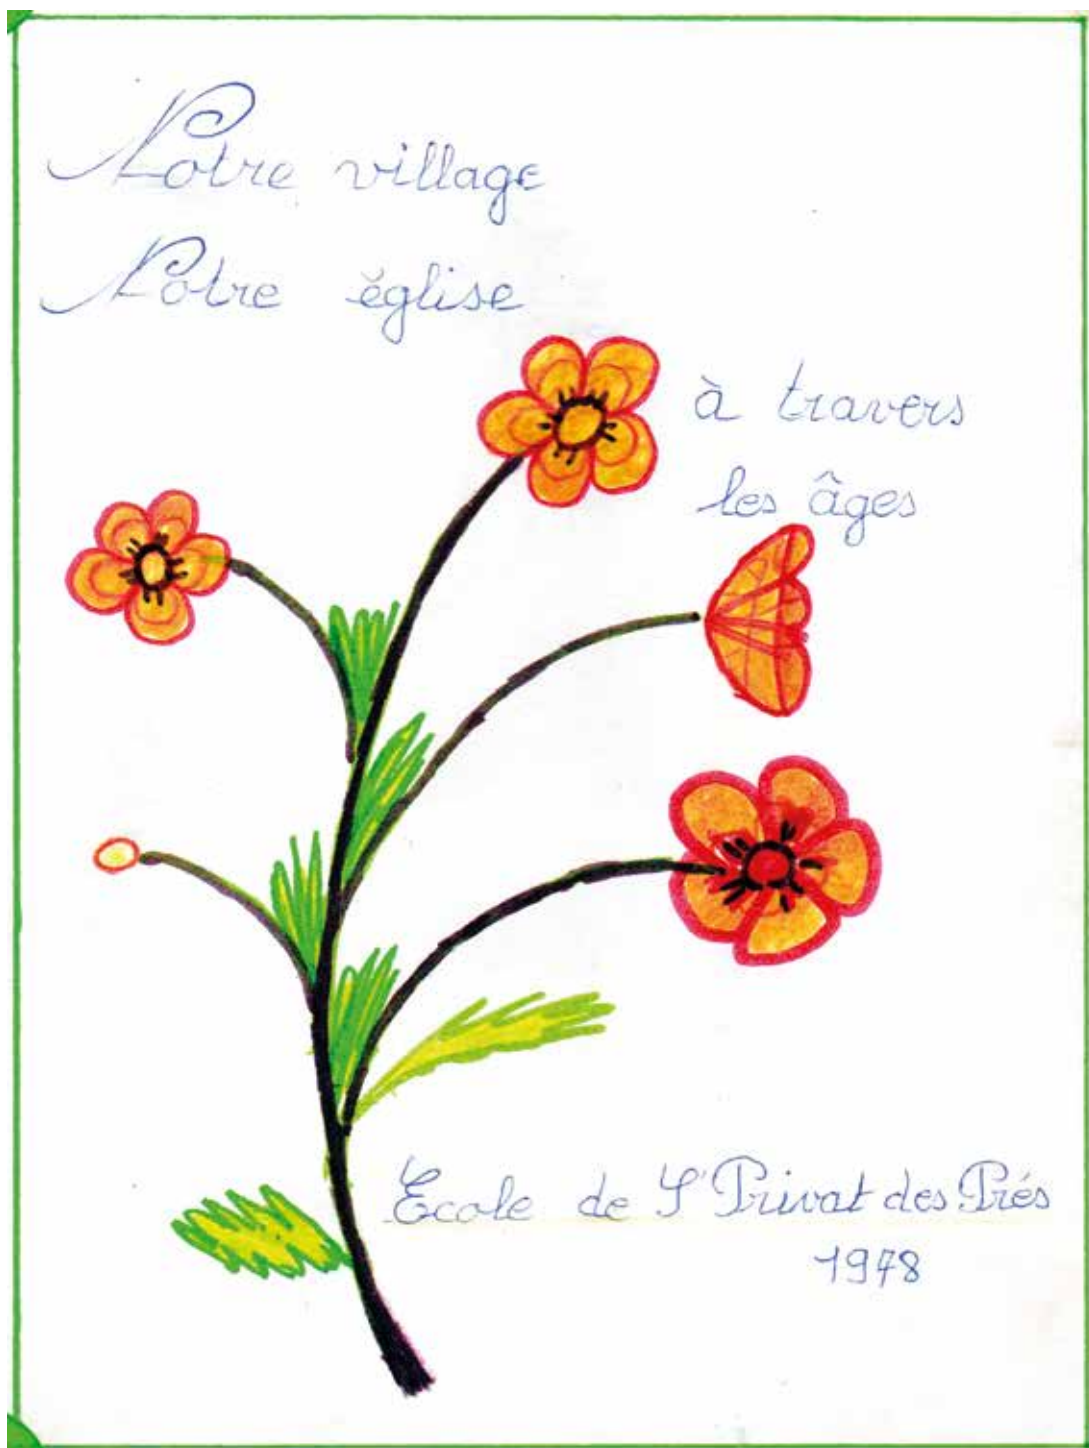 Notre village
Notre église
à travers
les âges
Ecole de St Privat des Prés
1978